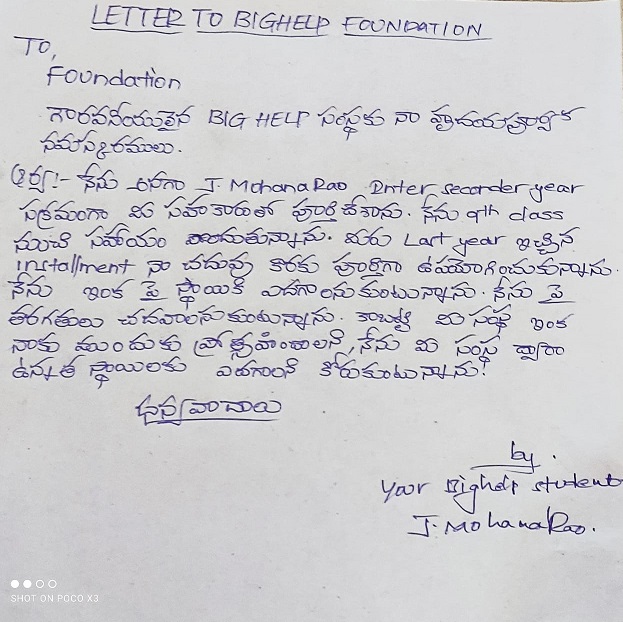 LETTER TO BIGHELP FOUNDATION
TO,
Foundation
గౌరవనీయులైన BIG HELP సంస్థకు నా హృదయపూర్వక
నమస్కారములు.
నేను అనగా J. MohanaRao Inter seconder year
సక్రమంగా మీ సహకారంతో పూర్తి చేశాను. నేను 9th class
నుంచి సహాయం పొందుతున్నాను. మీరు Last year ఇచ్చిన
installment నా చదువు కొరకు పూర్తిగా ఉపయోగించుకున్నాను.
నేను ఇంక పై స్థాయికి ఎదగాలనుకుంటున్నాను. నేను పై
తరగతులు చదవాలనుకుంటున్నాను. కాబట్టి మీ సంస్థ ఇంక
నాకు ముందుకు ప్రోత్సహించాలని, నేను మీ సంస్థ ద్వారా
ఉన్నత స్థాయిలకు ఎదగాలని కోరుకుంటున్నాను!
ధన్యవాదాలు
by.
Your Bighelp student
J. MohanaRao.
SHOT ON POCO X3